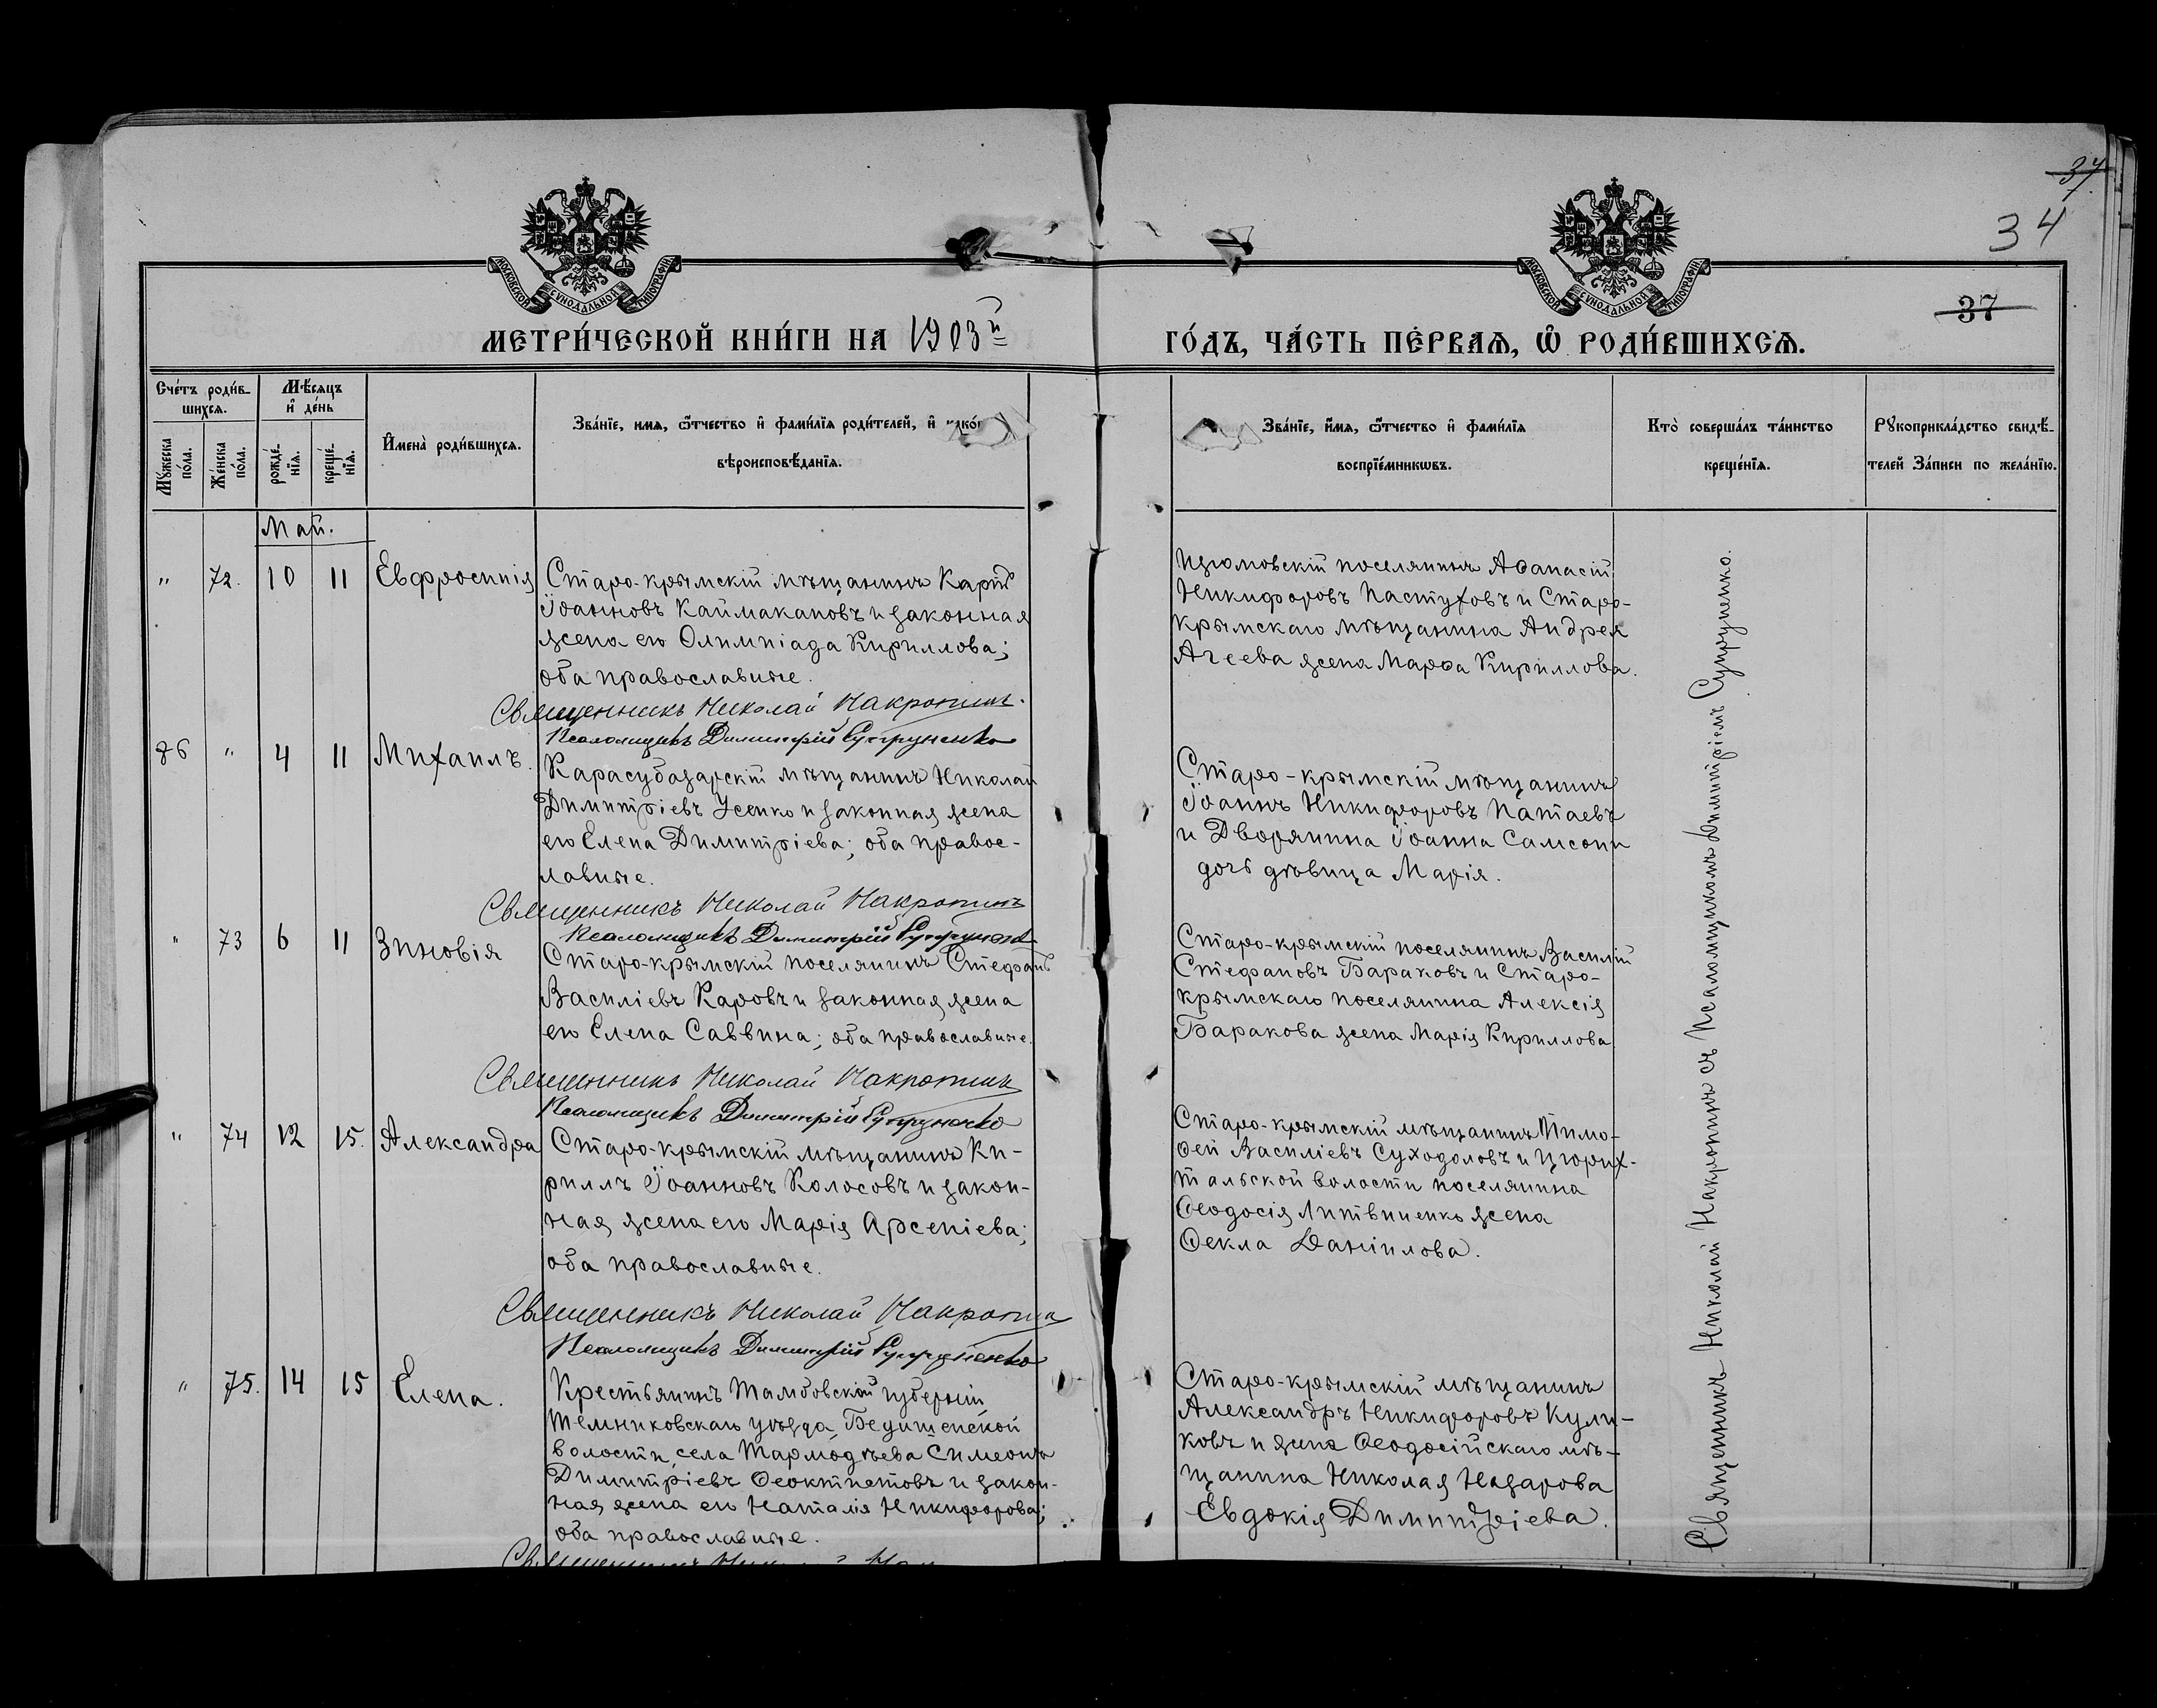 37
34
37
МОСКОВСКОЙ СѴНОДАЛЬНОЙ ТИПОГРАФІИ
МОСКОВСКОЙ СѴНОДАЛЬНОЙ ТИПОГРАФІИ
МЕТРИ́ЧЕСКОЙ КНИ́ГИ НА 1903й ГО́ДЪ, ЧА́СТЬ ПЕ́РВАѦ, Ѡ҆ РОДИ́ВШИХСѦ.
Сче́тъ роди́в-
шихсѧ.
Мѣ́сѧцъ
и҆ де́нь
Мꙋ́жеска
по́ла.
Же́нска
по́ла.
рожде́-
нїѧ.
креще́-
нїѧ.
И҆мена̀ роди́вшихсѧ.
Зва́нїе, имѧ, ѻ҆́тчество и҆ фами́лїѧ роди́телей, и҆
вѣроисповѣ́данїѧ.
Зва́нїе, и҆́мѧ, ѻ҆́тчество и҆ фами́лїѧ
воспрїе́мникѡвъ.
Кто̀ соверша́лъ та́инство
креще́нїѧ.
Рꙋкоприкла́дство свидѣ́-
телей За́писи по жела́нїю.
Май.
" 72. 10 11 Евфросинія
Старо-крымскій мѣщанинъ Карпъ
Іоанновъ Каймакановъ и законная
жена его Олимпіада Кириллова;
оба православные.
Изюмовскій поселянинъ Аѳанасій
Никифоровъ Пастуховъ и Старо-
крымскаго мѣщанина Андрея
Агеева жена Марѳа Кириллова.
Священникъ Николай Макропинъ.
Псаломщикъ Димитрій Супруненко
86 " 4 11 Михаилъ.
Карасубазарскій мѣщанинъ Николай
Димитріевъ Усенко и законная жена
его Елена Димитріева; оба правос-
лавные.
Старо-крымскій мѣщанинъ
Іоаннъ Никифоровъ Патаевъ
и Дворянина Іоанна Самсони
дочь дѣвица Марія.
Священникъ Николай Макропинъ
Псаломщикъ Димитрій Супруненко
" 73 6 11 Зиновія
Старо-крымскій поселянинъ Стефанъ
Василіевъ Каровъ и законная жена
его Елена Саввина; оба православные.
Старо-крымскій поселянинъ Василій
Стефановъ Бараковъ и Старо-
крымскаго поселянина Алексія
Баракова жена Марія Кириллова
Священникъ Николай Макропинъ
Псаломщикъ Димитрій Супруненко
" 74 12 15. Александра
Старо-крымскій мѣщанинъ Ки-
риллъ Іоанновъ Колосовъ и закон-
ная жена его Марія Арсеніева;
оба православные.
Старо-крымскій мѣщанинъ Тимо-
ѳей Василіевъ Суходоловъ и Цюрих-
тальской волости поселянина
Ѳеодосія Литвиненко жена
Ѳекла Даніилова.
Священникъ Николай Макропинъ
Псаломщикъ Димитрій Супруненко
" 75. 14 15 Елена.
Крестьянинъ Тамбовской губерніи,
Темниковскаго уѣзда,
волости, села Симеонъ
Димитріевъ Ѳеоктистовъ и закон-
ная жена его Наталія Никифорова;
оба православные.
Старо-крымскій мѣщанинъ
Александръ Никифоровъ Кули-
ковъ и жена Ѳеодосійскаго мѣ-
щанина Николая Назарова
Евдокія Димитріева.
Священникъ Николай
Священникъ Николай Макропинъ съ Псаломщикомъ Димитріемъ Супруненко.